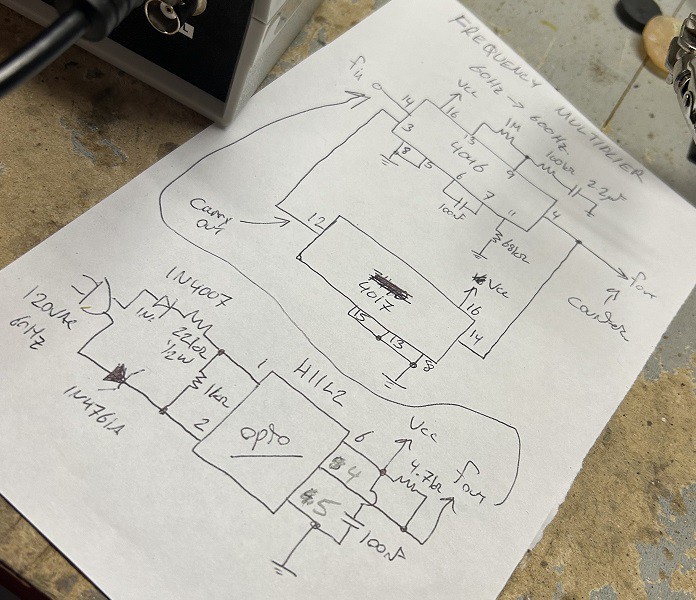 FREQUENCY MULTIPLIER
60Hz → 600Hz
fin
14
Vcc
16
1M
3
13
9
100kΩ
22µF
4046
8
5
6
7
11
4
100nF
68kΩ
fout
Counter
Carry
Out
12
4017
Vcc
16
14
15
13
8
1N4007
120VAC
60Hz
22kΩ
1/2W
1kΩ
1N4761A
1
2
H11L2
opto
6
4
5
Vcc
4.7kΩ
fout
100nF
L